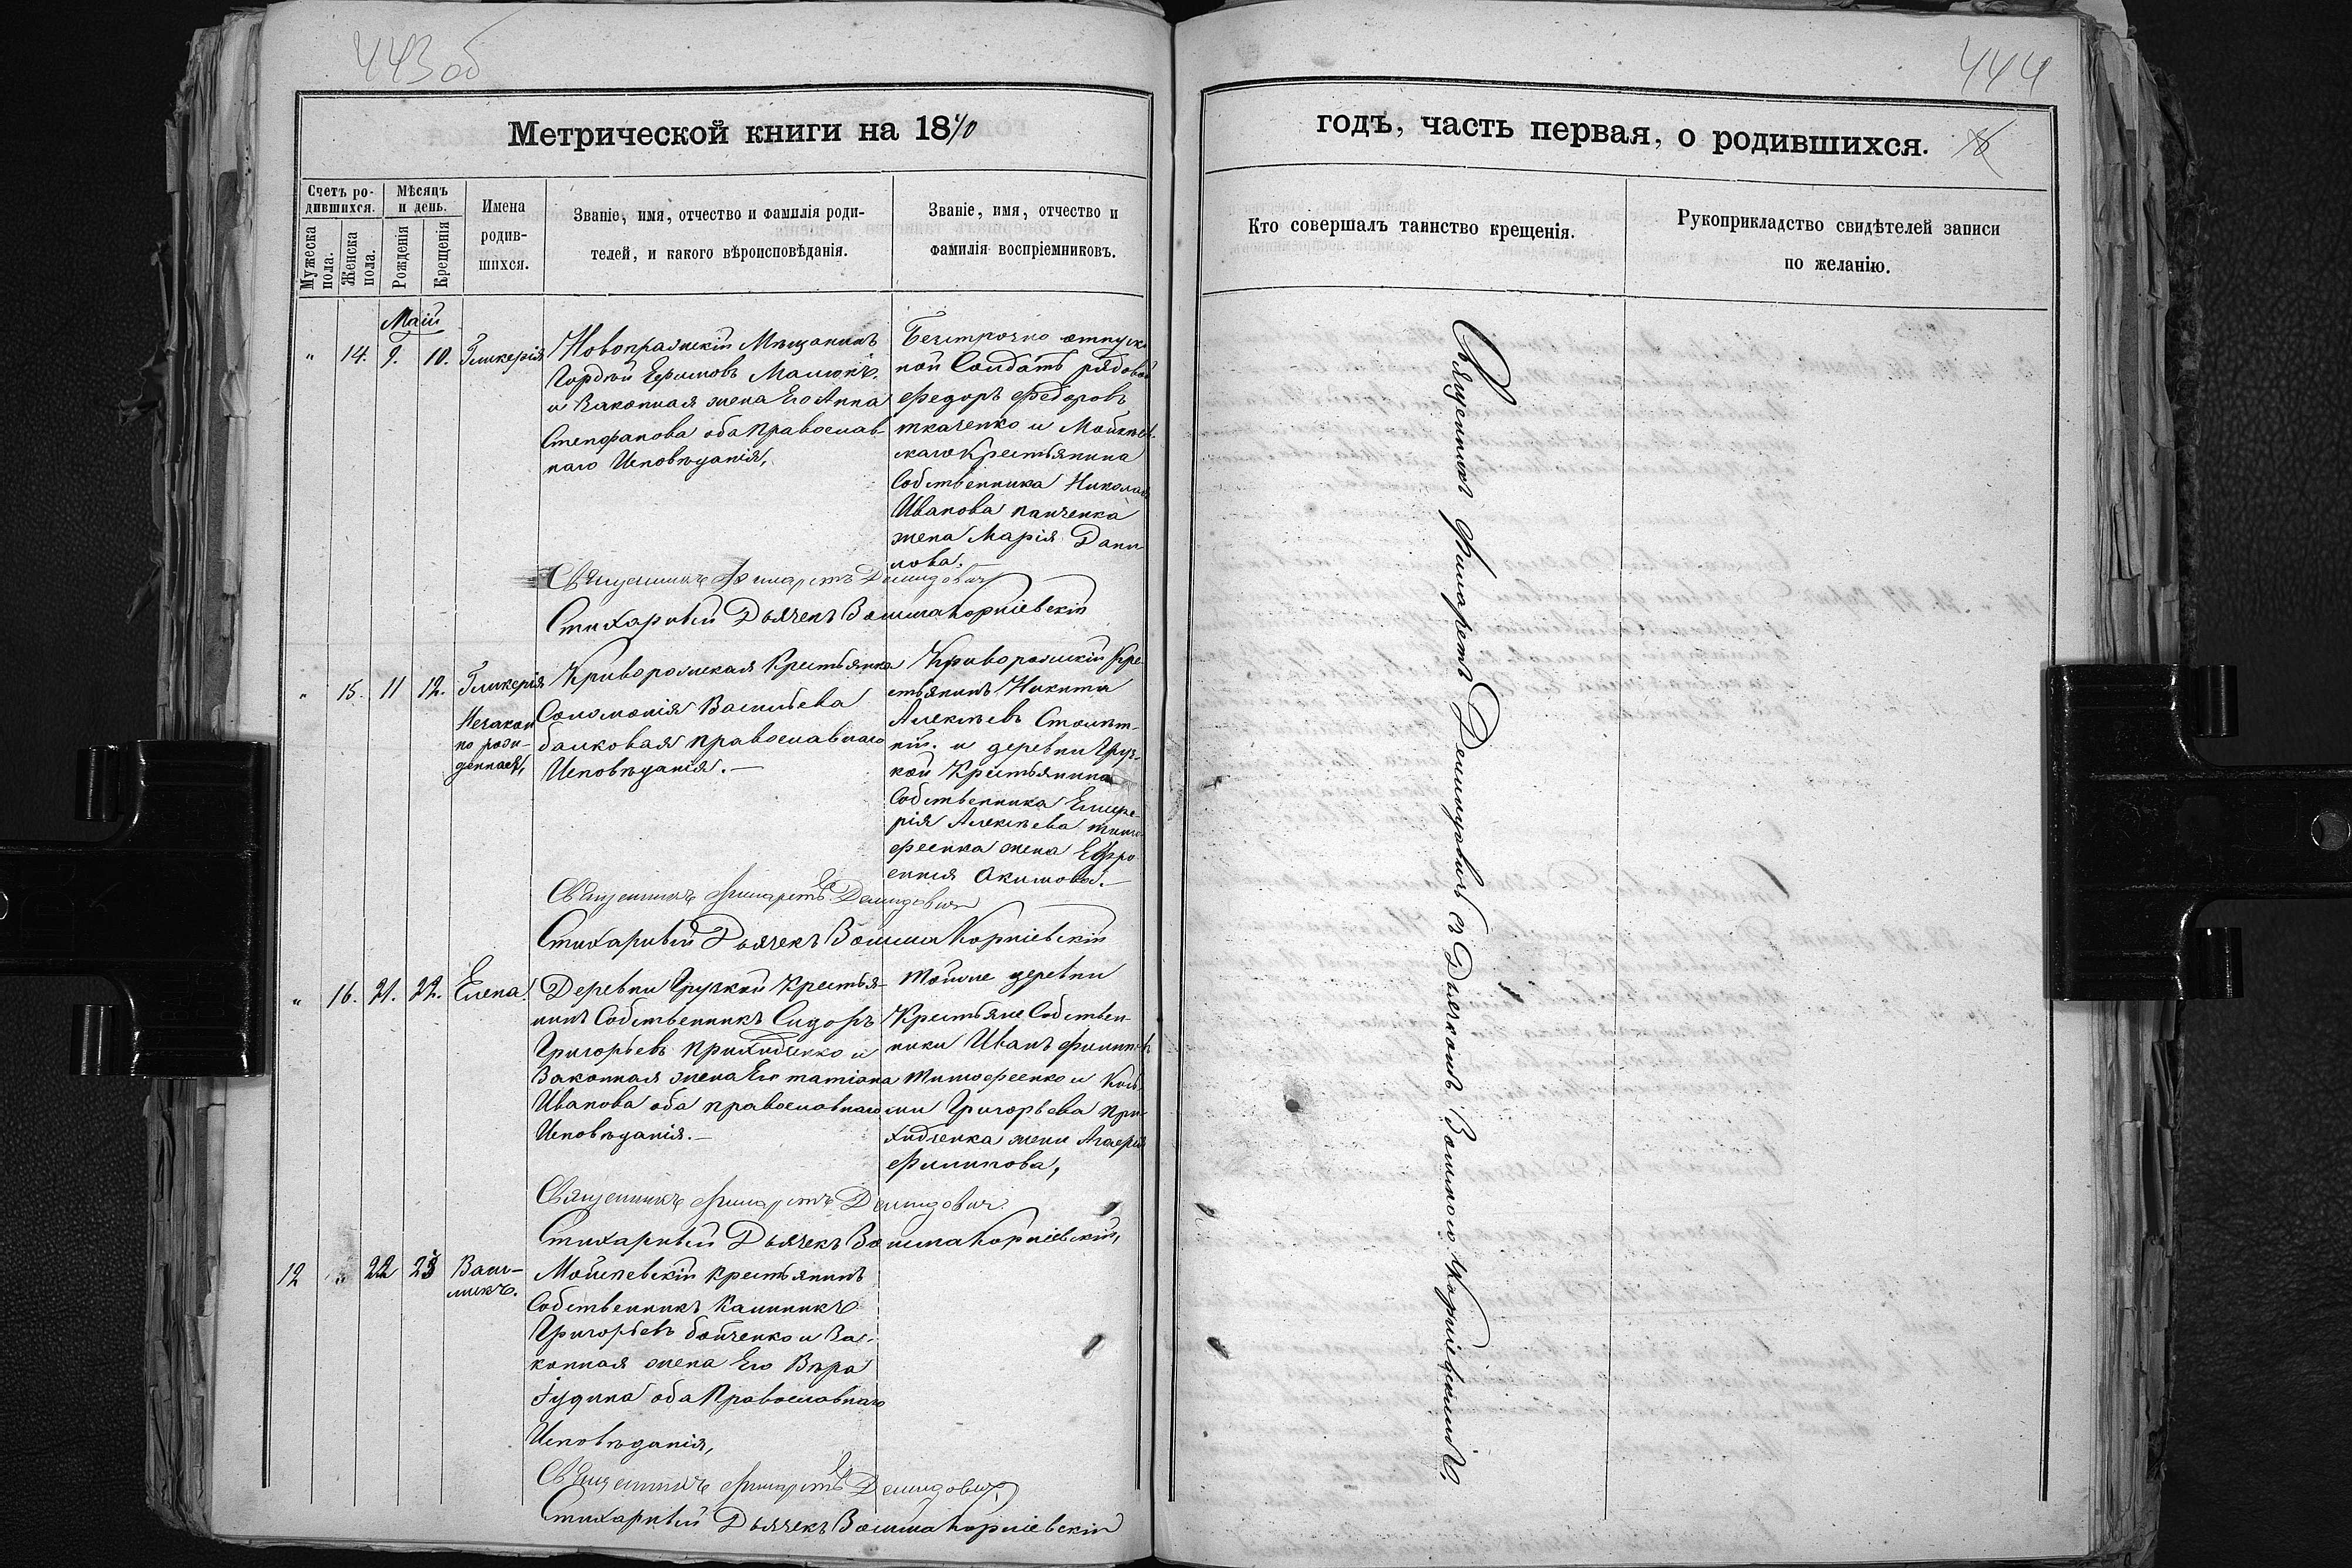 443 об
Метрической книги на 1870
Счетъ ро-
дившихся.
Мѣсяцъ
и день.
Мужеска
пола.
Женска
пола.
Рожденія
Крещенія
Имена
родив-
шихся.
Званіе, имя, отчество и фамилія роди-
телей, и какого вѣроисповѣданія.
Званіе, имя, отчество и
фамилія воспріемниковъ.
Май
" 14. 9. 10. Гликерія
Новопражскій Мѣщанинъ
Гордѣй Ефимовъ Малюкъ.
и Законная жена Его Анна
Стефанова оба Православ-
наго Исповѣданія,
Безсрочно отпуск
ной Солдатъ рядовой
Федоръ Федоровъ
ткаченко и Мойсѣев-
скаго Крестьянина
Собственника Николая
Иванова панченка
жена Марія Дани
лова.
Священникъ Филаретъ Демидовичъ
Стихарный Дьячекъ Корніевскій
" 15. 11 12. Гликерія
Незакон
но рож-
денная,
Криворожская Крестьянка
Соломонія Васильева
балковая православнаго
Исповѣданія.—
Криворожскій Кре-
стьянинъ Никита
Алексѣевъ
и деревни Груз-
кой Крестьянина
Собственника
Алексѣева тимо-
феенка жена Ефро
синія Акимова.—
Священникъ Филаретъ Демидовичъ
Стихарный Дьячекъ Корніевскій
" 16. 21. 22. Елена.
Деревни Грузкой Крестья-
нинъ Собственникъ Сидоръ
Григорьевъ Приходченко и
Законная жена Его татіана
Иванова оба православнаго
Исповѣданія.—
тойже деревни
Крестьяне Собствен-
ники Иванъ Филиповъ
Тимофеенко и Козь-
мы Григорьева При-
ходченка жена Агафія
Филипова,
Священникъ Филаретъ Демидовичъ.
Стихарный Дьячекъ Корніевскій,
12 22 23
Васи-
лискъ.
Мойсѣевскій крестьянинъ
Собственникъ Калиникъ
Григорьевъ бойченко и За-
конная жена Его Вѣра
Іудина оба Православнаго
Исповѣданія,
Священникъ Филаретъ Демидовичъ,
Стихарный Дьячекъ Корніевскій
444
годъ, часть первая, о родившихся.
Кто совершалъ таинство крещенія.
Рукоприкладство свидѣтелей записи
по желанію.
Священникъ Филаретъ Демидовичъ съ Дьячкомъ Корніевскимъ.